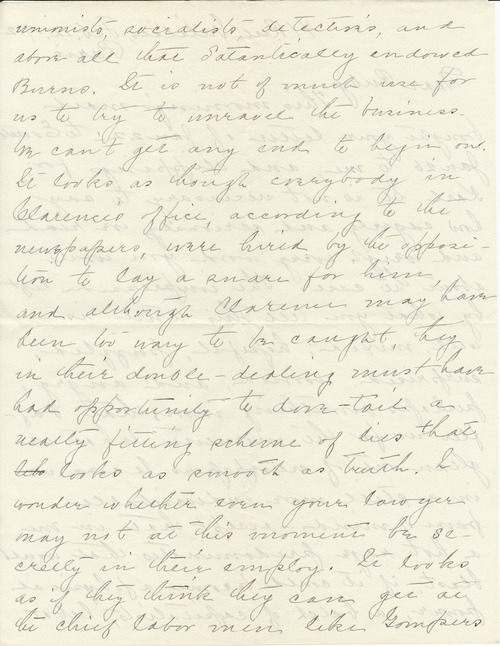 unionists, socialists, detectives, and
above all that Satantically endowed
Burns. It is not of much use for
us to try to unravel the business.
We can't get any end to begin on.
It looks as though everybody in
Clarence's office, according to the
newspapers, were hired by the opposi-
tion to lay a snare for him,
and although Clarence may have
been too wary to be caught, they
in their double-dealing must have
had opportunity to dove-tail a
neatly fitting scheme of lies that
looks as smooth as truth. I
wonder whether even your lawyer
may not at this moment be se-
cretly in their employ. It looks
as if they think they can get at
the chief labor men like Gompers